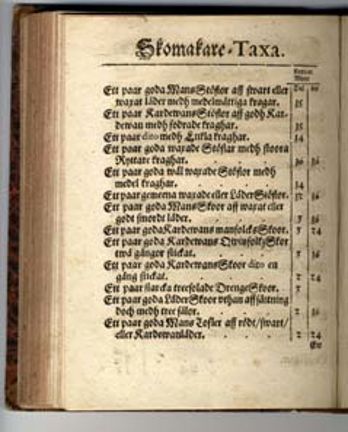 Skomakare-Taxa.
Ett paar goda Mans Stöflor aff swart eller
waxat läder medh medelmåttiga kragar. 15
Ett paar Kardewans Stöflor aff godh Kar-
dewan medh fodrade kraghar. 15
Ett paar dito medh Lutla kraghar. 14
Ett paar goda waxade Stöflar medh stoora
Ryttare kraghar.
Ett paar goda wäl waxade Stöflor medh
medel kraghar. 14
Ett paar gemeena waxade eller Läder Stöflor.
Ett paar goda Mans Skoor aff waxat eller
godt smordt läder.
Ett paar goda Kardewans mansfolcks Skoor. 3 24
Ett paar goda Kardewans Qwinfolkz Skor
twå gångor stickat.
Ett paar goda Kardewans Skoor dito en
gång stickat. 2 24
Ett paar starcka treesolade Drenge Skoor. 3
Ett paar goda Läder Skoor vthan affsättning
doch medh tree sålor. 2
Ett paar goda Mans Tofler aff rödt/swart/
eller Kardewanläder. 2 24
Ett